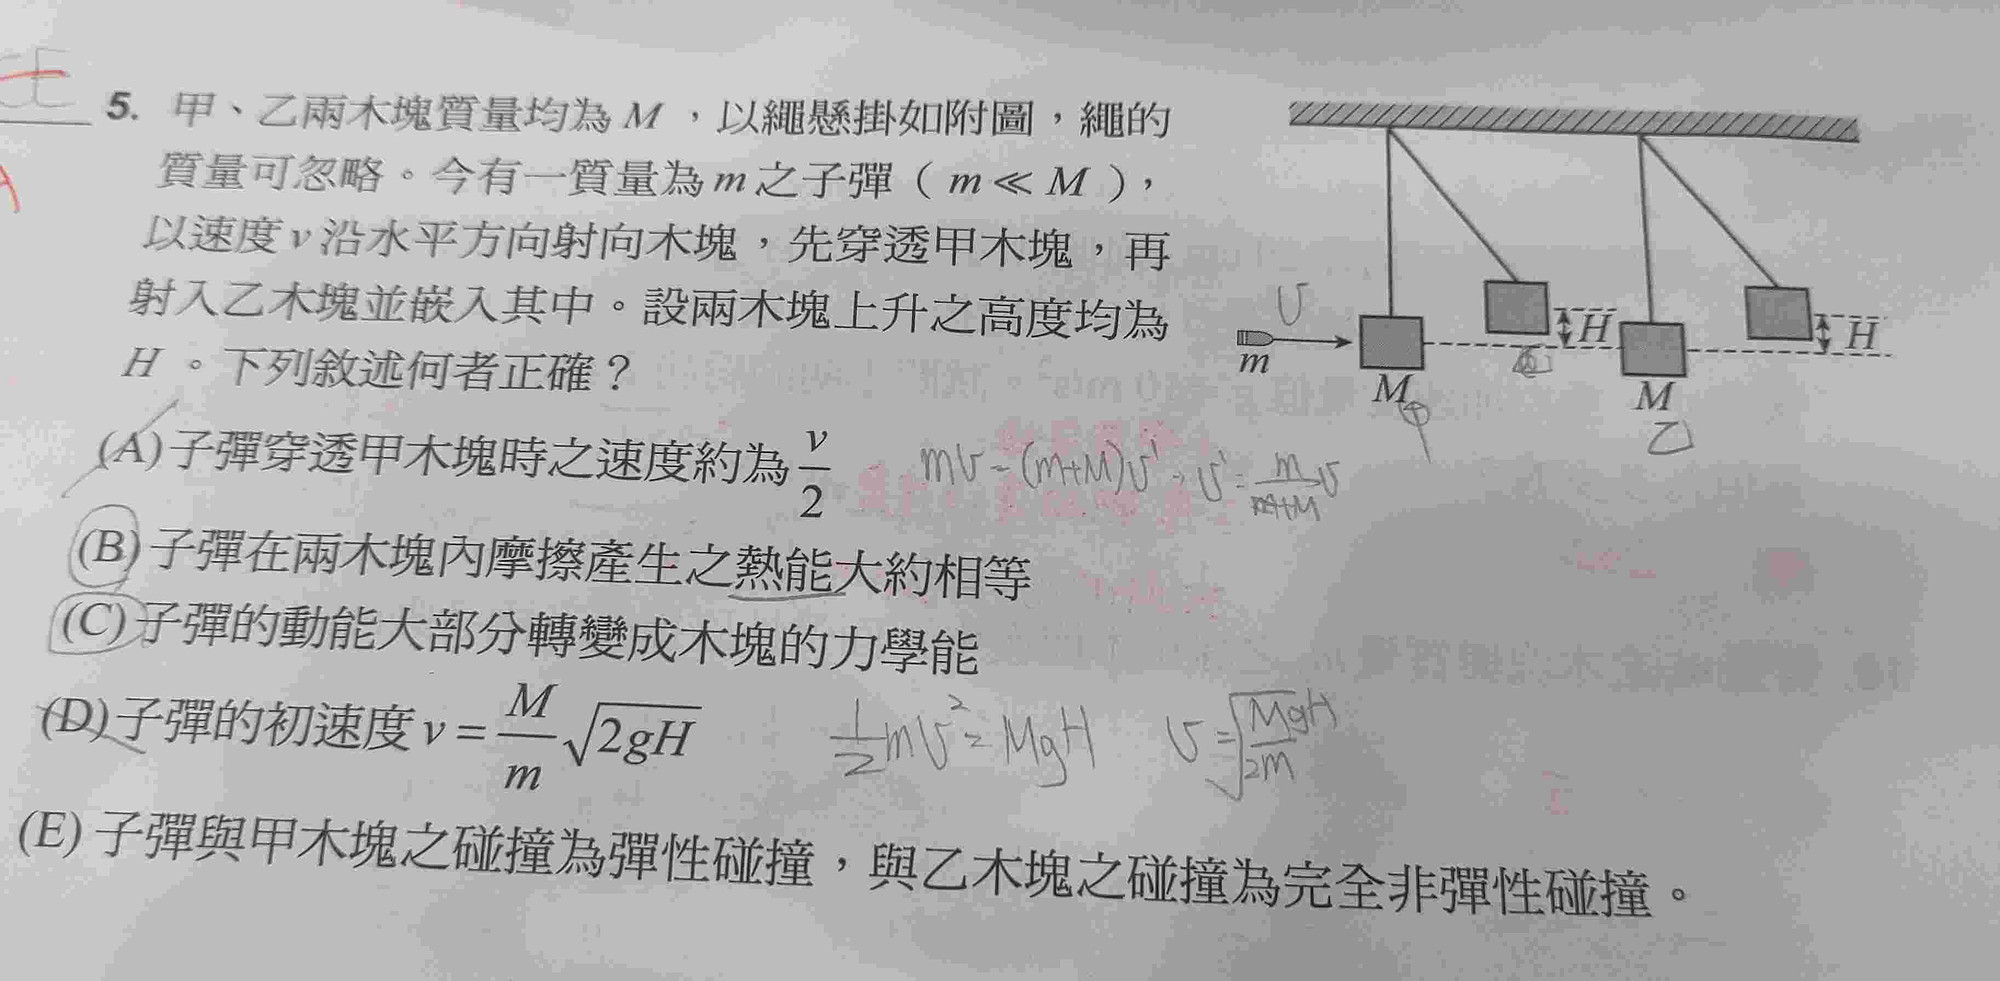 5. 甲、乙兩木塊質量均為 M ，以繩懸掛如附圖，繩的
質量可忽略。今有一質量為 m 之子彈（ m ≪ M ），
以速度 v 沿水平方向射向木塊，先穿透甲木塊，再
射入乙木塊並嵌入其中。設兩木塊上升之高度均為
H 。下列敘述何者正確？
υ
m
M
甲
H
M
乙
H
(A) 子彈穿透甲木塊時之速度約為 v/2
mυ = (m+M)υ' , υ' = m/(m+M) υ
(B) 子彈在兩木塊內摩擦產生之熱能大約相等
(C) 子彈的動能大部分轉變成木塊的力學能
(D) 子彈的初速度 v = M/m √2gH
1/2 mυ² = MgH υ = √MgH/2m
(E) 子彈與甲木塊之碰撞為彈性碰撞，與乙木塊之碰撞為完全非彈性碰撞。